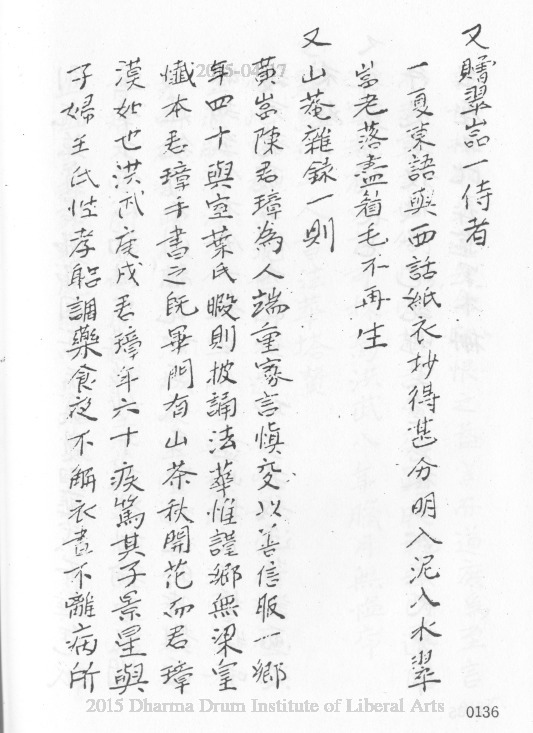 又贈翠嵓一侍者
一夏東語與西話紙衣抄得甚分明入泥入水翠
嵓老落盡眉毛不再生
又山菴雜錄一則
黃嵓陳君璋為人端重寡言慎交以善信服一鄉
年四十與室葉氏暇則披誦法華惟謹鄉無梁皇
懺本君璋手書之既畢門有山茶秋開花而君璋
漠如也洪武庚戌君璋年六十疾篤其子景星與
子婦王氏性孝躬調藥食夜不解衣晝不離病所
2015-04-17
2015 Dharma Drum Institute of Liberal Arts
0136